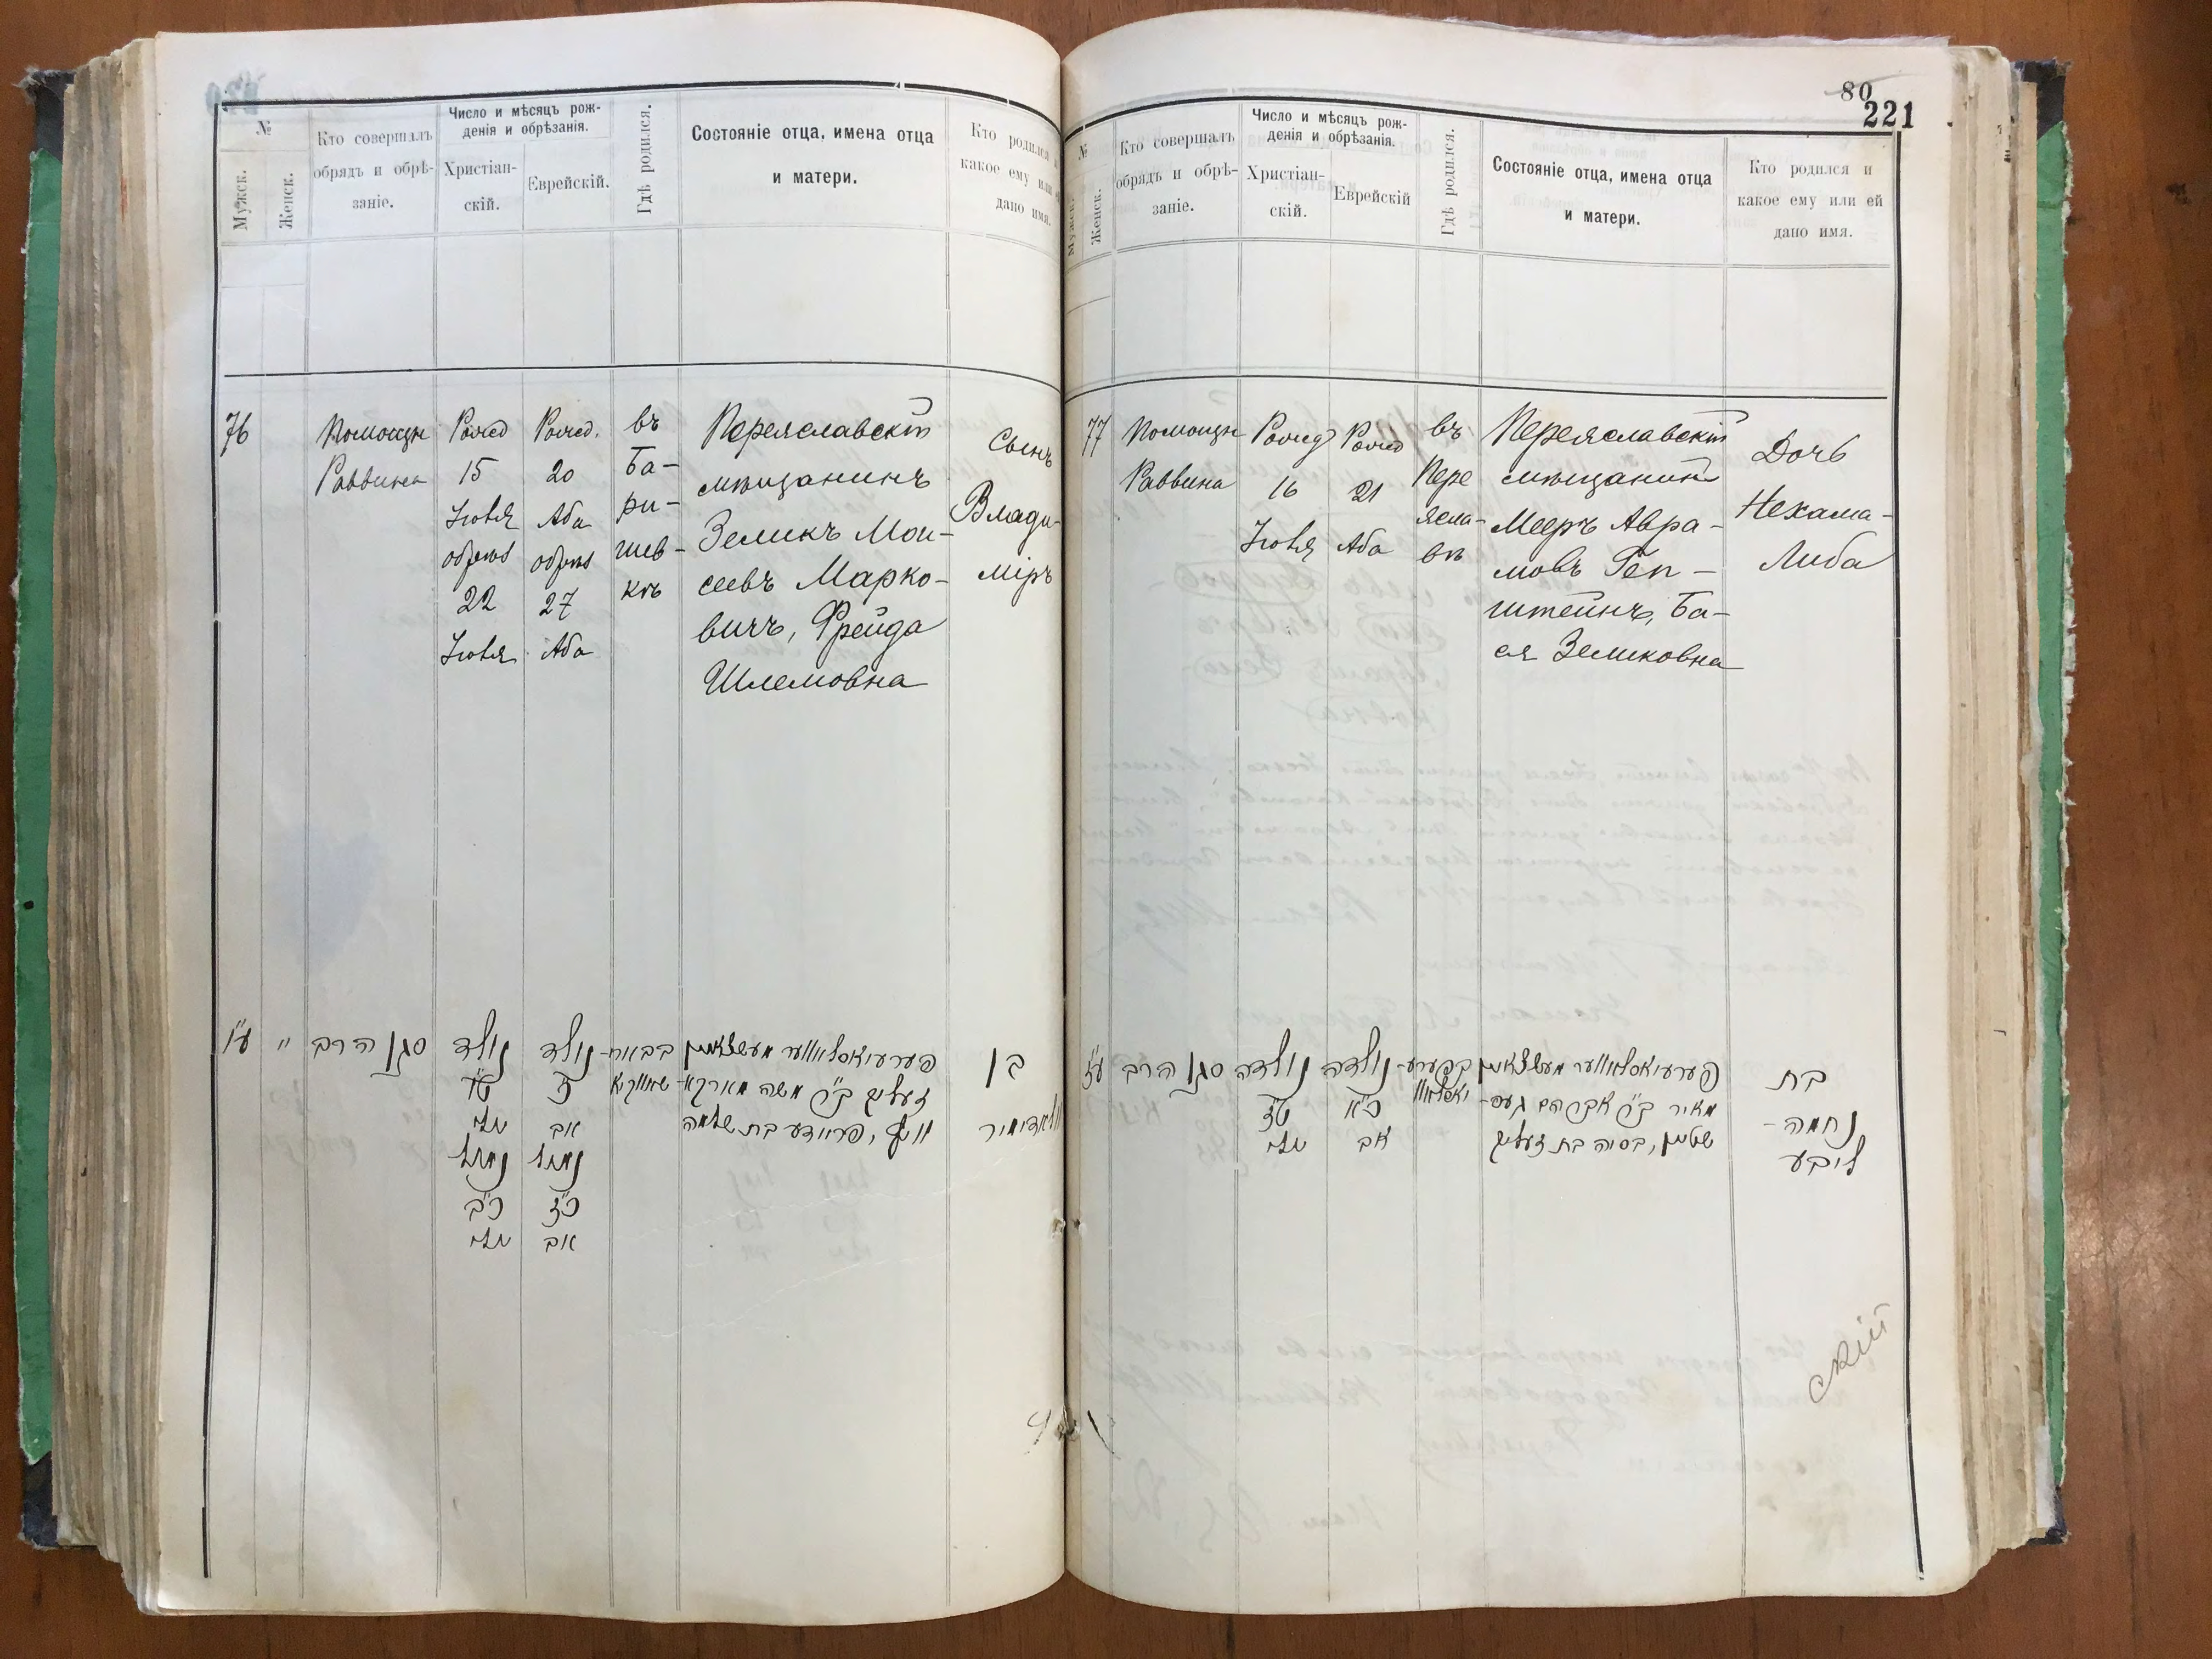 №
Мужск.
Женск.
Кто совершалъ
обрядъ и обрѣ-
заніе.
Число и мѣсяцъ рож-
денія и обрѣзанія.
Христіан-
скій.
Еврейскій.
Гдѣ родился.
Состояніе отца, имена отца
и матери.
Кто родился
какое ему или
дано имя.
76
Помощн
Раввина
Рожд
15
Іюля
обрѣз
22
Іюля
Рожд.
20
Аба
обрѣз
27
Аба
въ
Ба-
ри-
шев-
кѣ
Переяславскій
мѣщанинъ
Зеликъ Мои-
сеевъ Марко-
вичъ, Фрейда
Шлемовна
Сынъ
Влади-
міръ
ע״ו
״
סגן הרב
נולד
ט״ו
יולי
נמול
כ״ב
יולי
נולד
כ׳
אב
נמול
כ״ז
אב
בבאר-
ישאווקא
פערעיאסלאווער מעשצאנין
זעליק ב״ר משה מארקא-
וויץ, פריידע בת שלמה
בן
וולאדימיר
80
221
№
Мужск.
Женск.
Кто совершалъ
обрядъ и обрѣ-
заніе.
Число и мѣсяцъ рож-
денія и обрѣзанія.
Христіан-
скій.
Еврейскій
Гдѣ родился.
Состояніе отца, имена отца
и матери.
Кто родился и
какое ему или ей
дано имя.
77
Помощн
Раввина
Рожд
16
Іюля
Рожд
21
Аба
въ
Пере
ясла-
вѣ
Переяславскій
мѣщанинъ
Мееръ Авра-
мовъ Геп-
штейнъ, Ба-
ся Зеликовна
Дочь
Нехама-
Либа
ע״ז
סגן הרב
נולדה
ט״ז
יולי
נולדה
כ״א
אב
בפערע-
יאסלאוו
פערעיאסלאווער מעשצאנין
מאיר ב״ר אברהם געפ-
שטיין, בסיה בת זעליק
בת
נחמה-
ליבע
скій